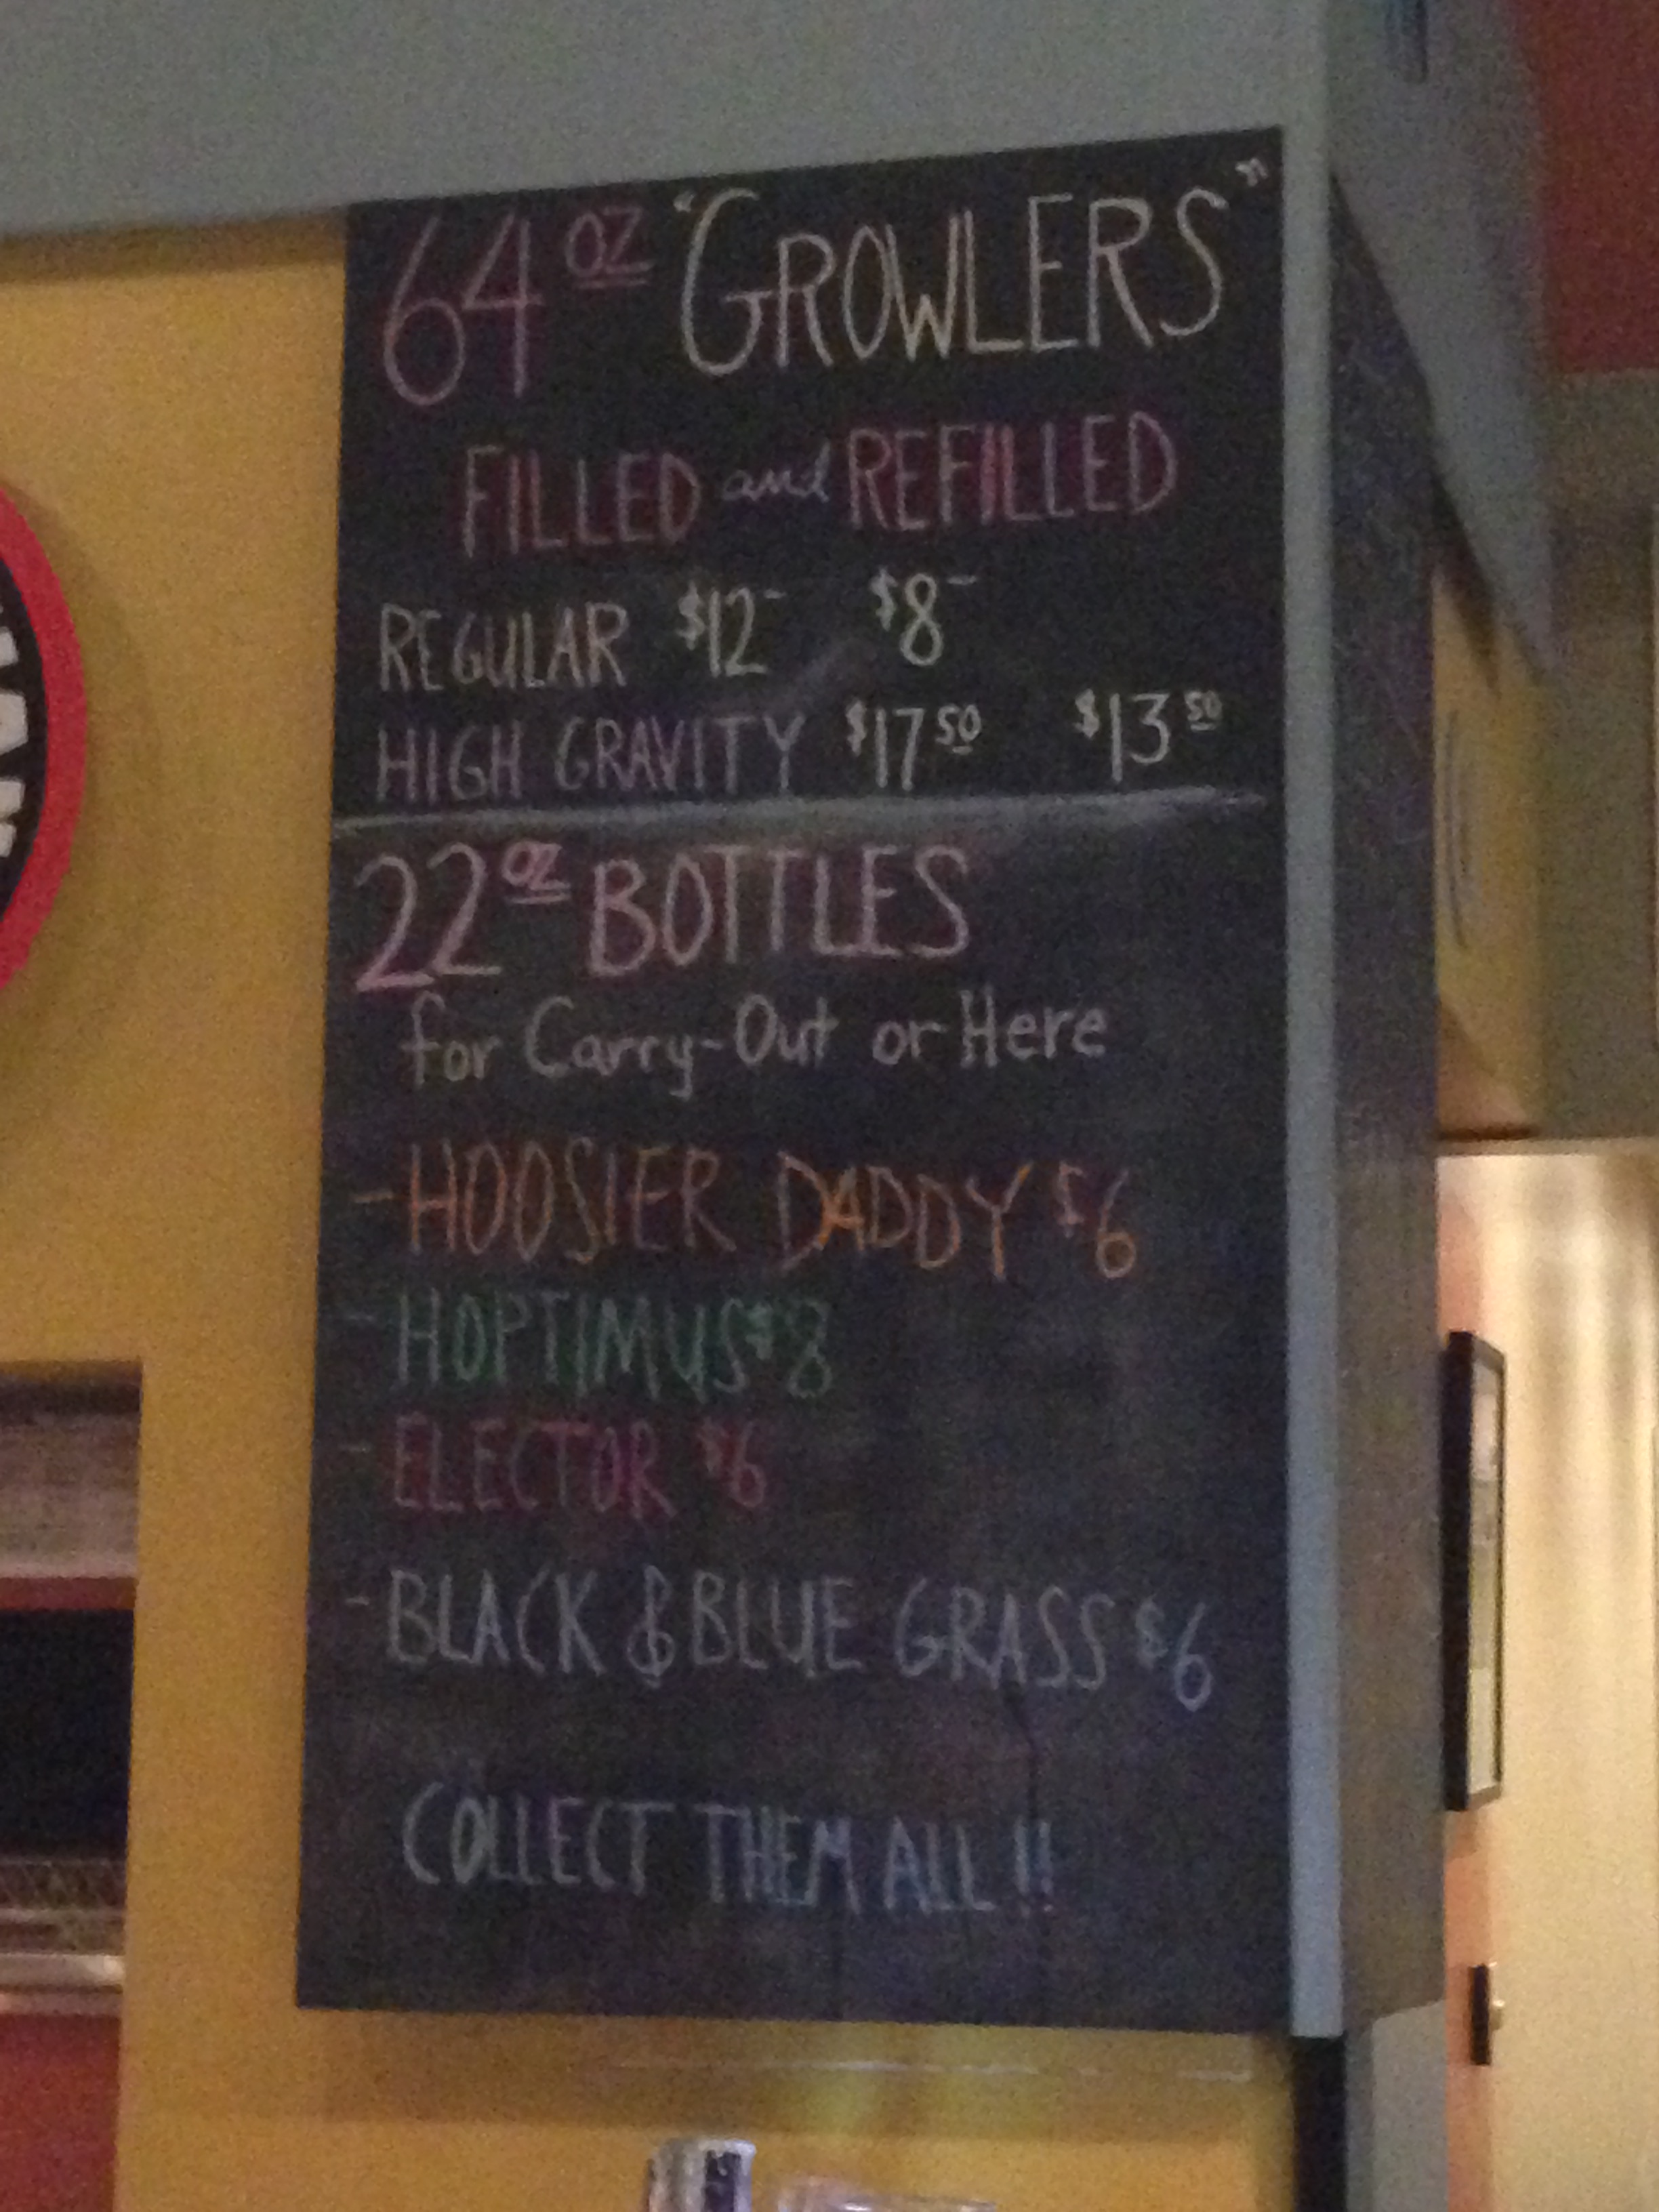 64 oz "GROWLERS"
FILLED and REFILLED
REGULAR $12- $8-
HIGH GRAVITY $17 50 $13 50
22 oz BOTTLES
for Carry-Out or Here
- HOOSIER DADDY $6
- HOPTIMUS $8
- ELECTOR $6
- BLACK & BLUE GRASS $6
COLLECT THEM ALL!!